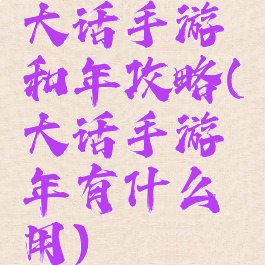 大话手游
和年攻略(
大话手游
年有什么
用)